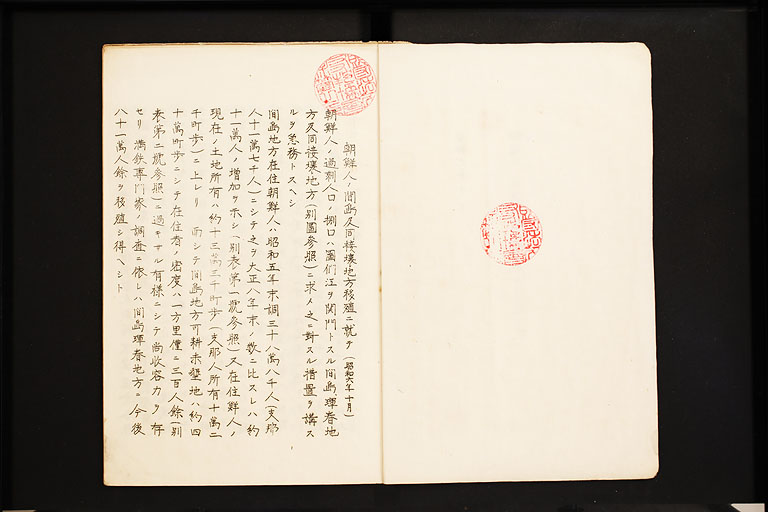 朝鮮人ノ間島及同接壌地方移殖ニ就テ（昭和六年十月）
朝鮮人ノ過剰人口ノ捌口ハ圖們江ヲ関門トスル間島琿春地
方及同接壌地方（別圖参照）ニ求メ之ニ対スル措置ヲ講ス
ルヲ急務トスヘシ
間島地方在住朝鮮人ハ昭和五年末調三十八萬八千人（支那
人十一萬七千人）ニシテ之ヲ大正八年末ノ数ニ比スレハ約
十一萬人ノ増加ヲ示シ（別表第一號参照）又在住鮮人ノ
現在ノ土地所有ハ約十三萬三千町歩（支那人所有十萬二
千町歩）ニ上レリ 而シテ間島地方可耕未墾地ハ約四
十萬町歩ニシテ在住者ノ密度ハ一方里僅ニ三百人餘（別
表第二號参照）ニ過キサル有様ニシテ尚收容力ヲ存
セリ 満鉄専門家ノ調査ニ依レハ間島琿春地方ニ今後
八十一萬人餘ヲ移殖シ得ヘシト